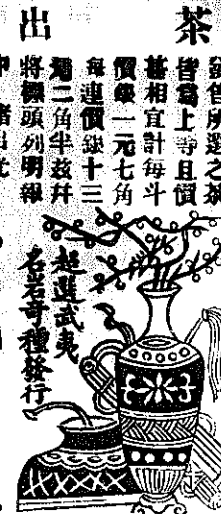 茶
出
發售所選之茶
皆爲上等且價
甚相宜計每斗
價錄一元七角
每連價錄十三
二角半茲幷
將標頭列明報
超選武夷
名岩奇種發行